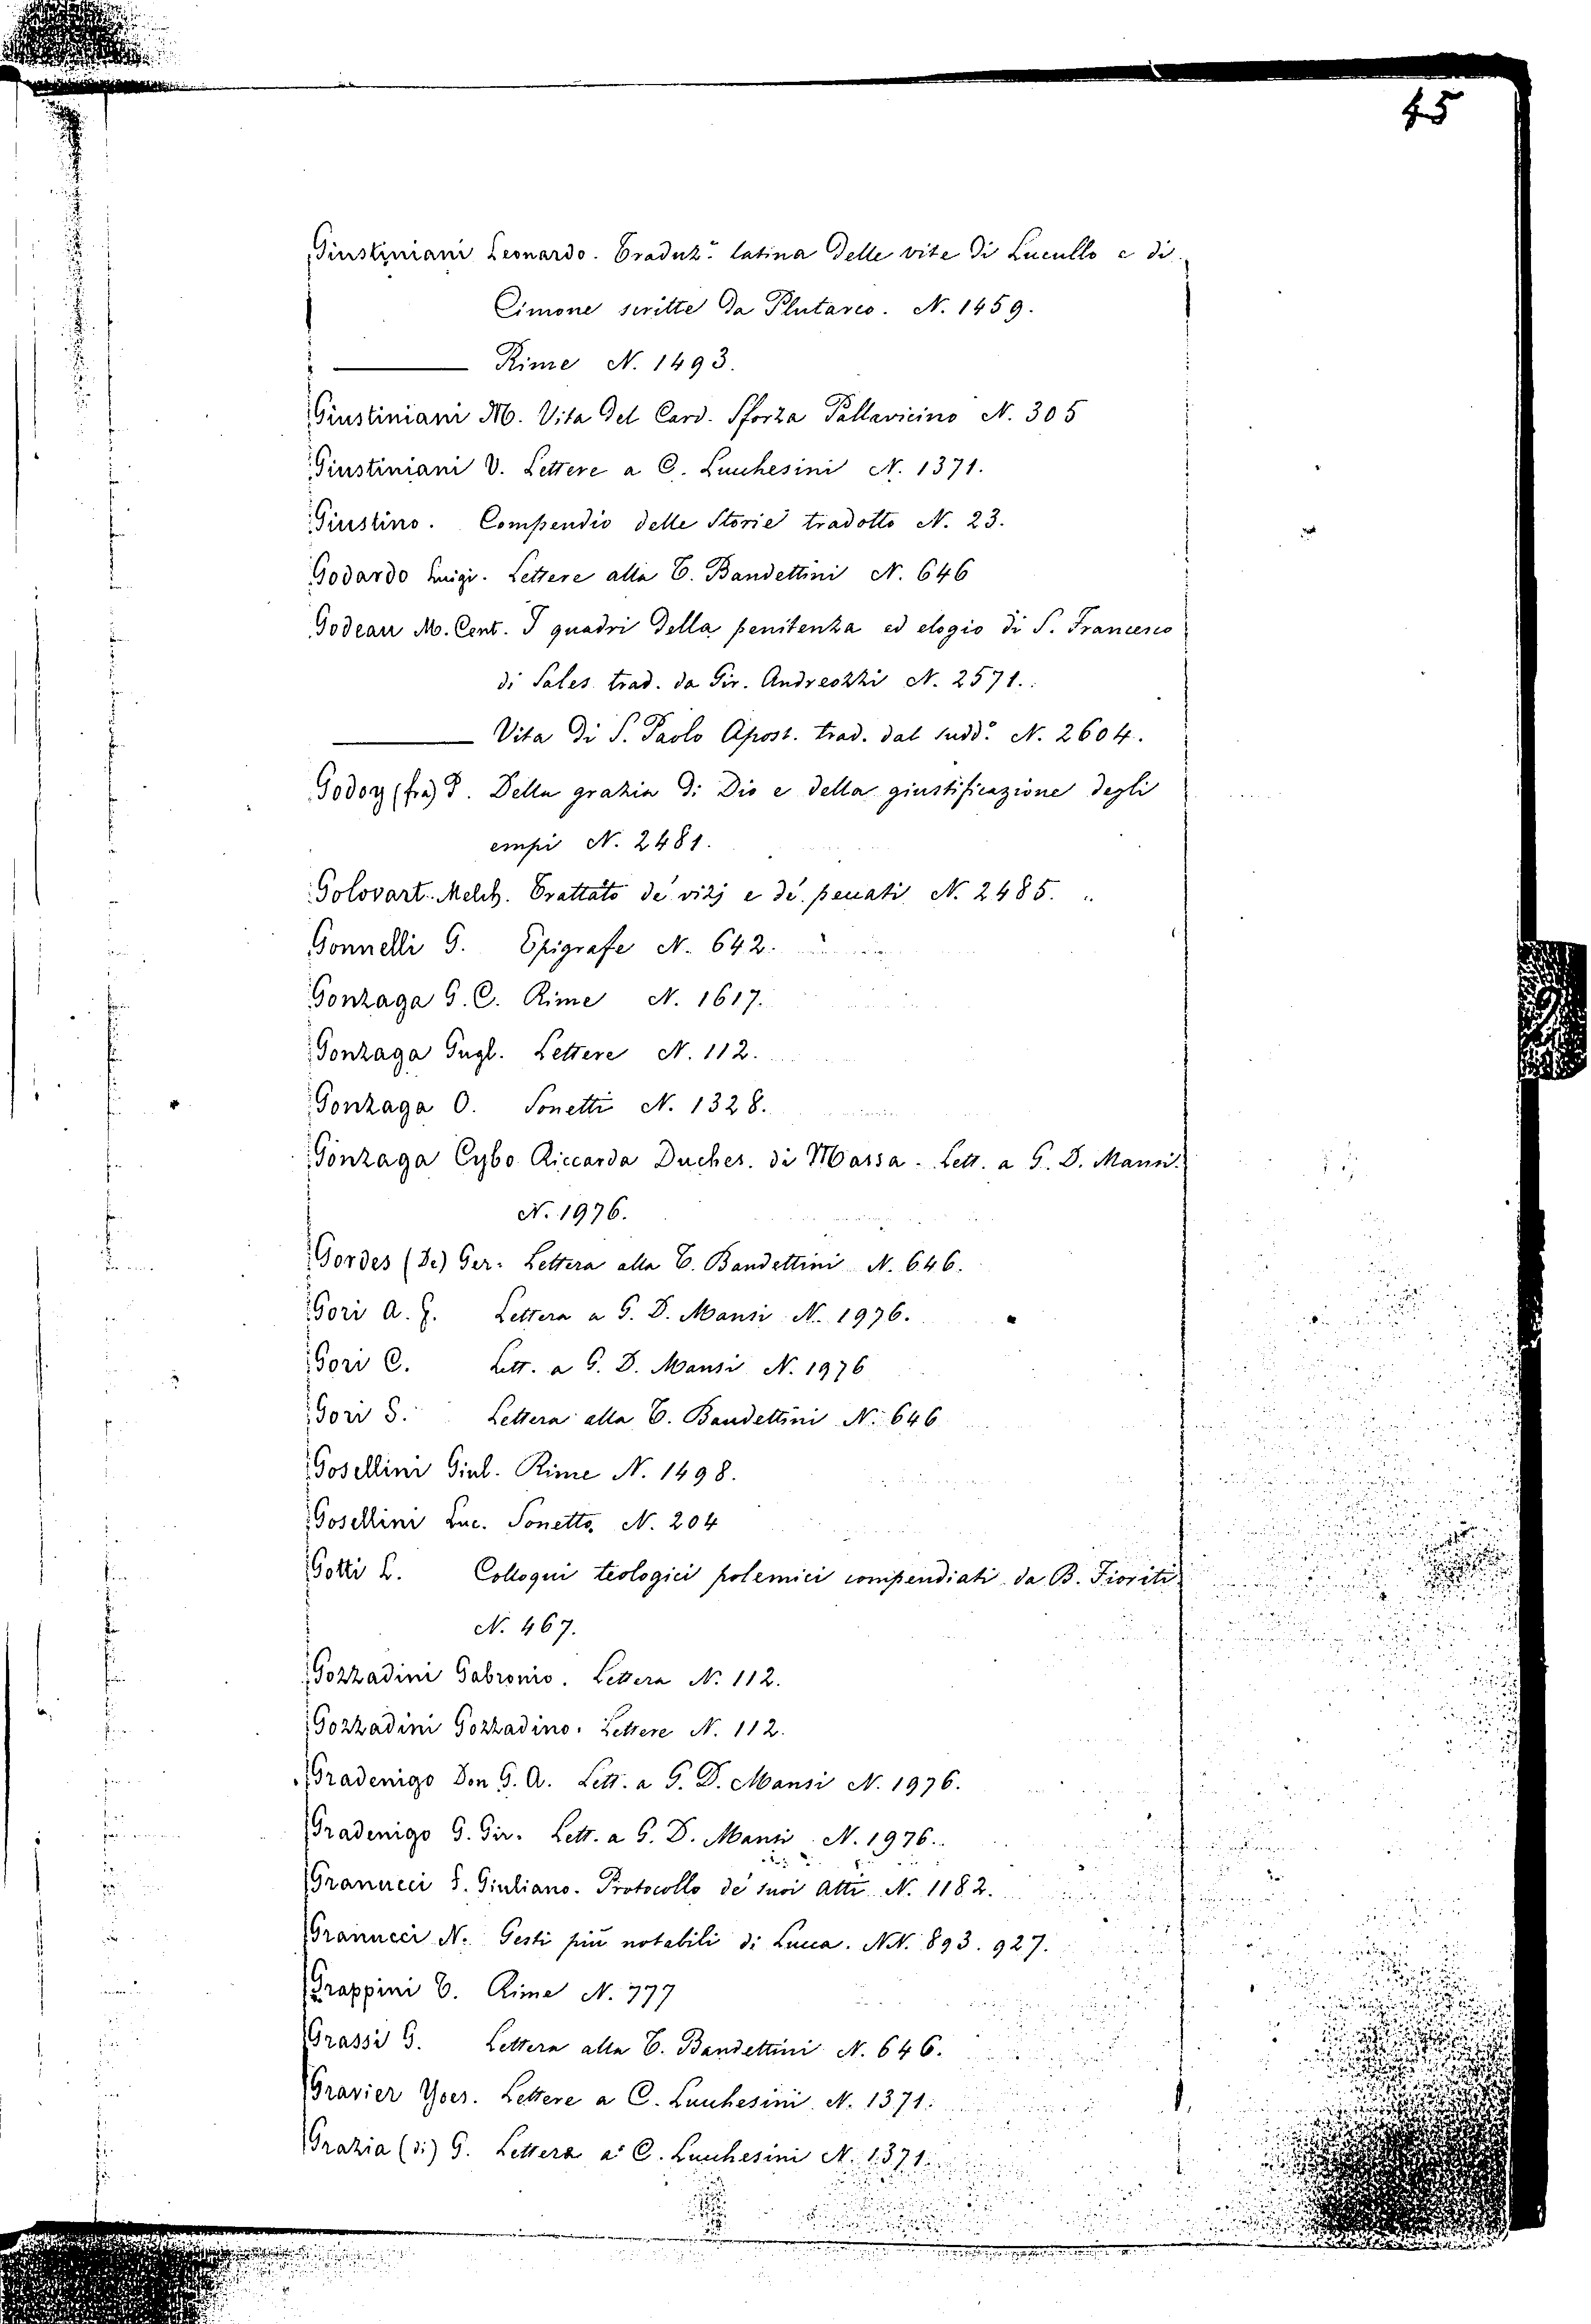 45
Giustiniani Leonardo. Traduz.e latina delle vite di Lucullo e di
Cimone scritte da Plutarco. N. 1459.
——— Rime N. 1493.
Giustiniani M. Vita del Card. Sforza Pallavicino N. 305
Giustiniani V. Lettere a C. Lucchesini N. 1371.
Giustino. Compendio delle Storie tradotto N. 23.
Godardo Luigi. Lettere alla T. Bandettini N. 646
Godeau M. Cent. I quadri della penitenza ed elogio di S. Francesco
di Sales trad. da Gir. Andreozzi N. 2571.
——— Vita di S. Paolo Apost. trad. dal sudd.o N. 2604.
Godoy (fra) P. Della grazia di Dio e della giustificazione degli
empi N. 2481.
Golovart Melch. Trattato de' vizj e de' peccati N. 2485.
Gonnelli G. Epigrafe N. 642.
Gonzaga G. C. Rime N. 1617.
Gonzaga Gugl. Lettere N. 112.
Gonzaga O. Sonetti N. 1328.
Gonzaga Cybo Riccarda Duches. di Massa. Lett. a G. D. Mansi.
N. 1976.
Gordes (De) Ger. Lettera alla T. Bandettini N. 646.
Gori A. F. Lettera a G. D. Mansi N. 1976.
Gori C. Lett. a G. D. Mansi N. 1976
Gori S. Lettera alla T. Bandettini N. 646
Gosellini Giul. Rime N. 1498.
Gosellini Luc. Sonetto N. 204
Gotti L. Colloqui teologici polemici compendiati da B. Fioriti
N. 467.
Gozzadini Gabronio. Lettera N. 112.
Gozzadini Gozzadino. Lettere N. 112.
Gradenigo Don G. A. Lett. a G. D. Mansi N. 1976.
Gradenigo G. Gir. Lett. a G. D. Mansi N. 1976.
Granucci S. Giuliano. Protocollo de' suoi Atti N. 1182.
Granucci N. Gesti più notabili di Lucca. NN. 893. 927.
Grappini T. Rime N. 777
Grassi G. Lettera alla T. Bandettini N. 646.
Gravier Yves. Lettere a C. Lucchesini N. 1371.
Grazia (di) G. Lettera a C. Lucchesini N. 1371.